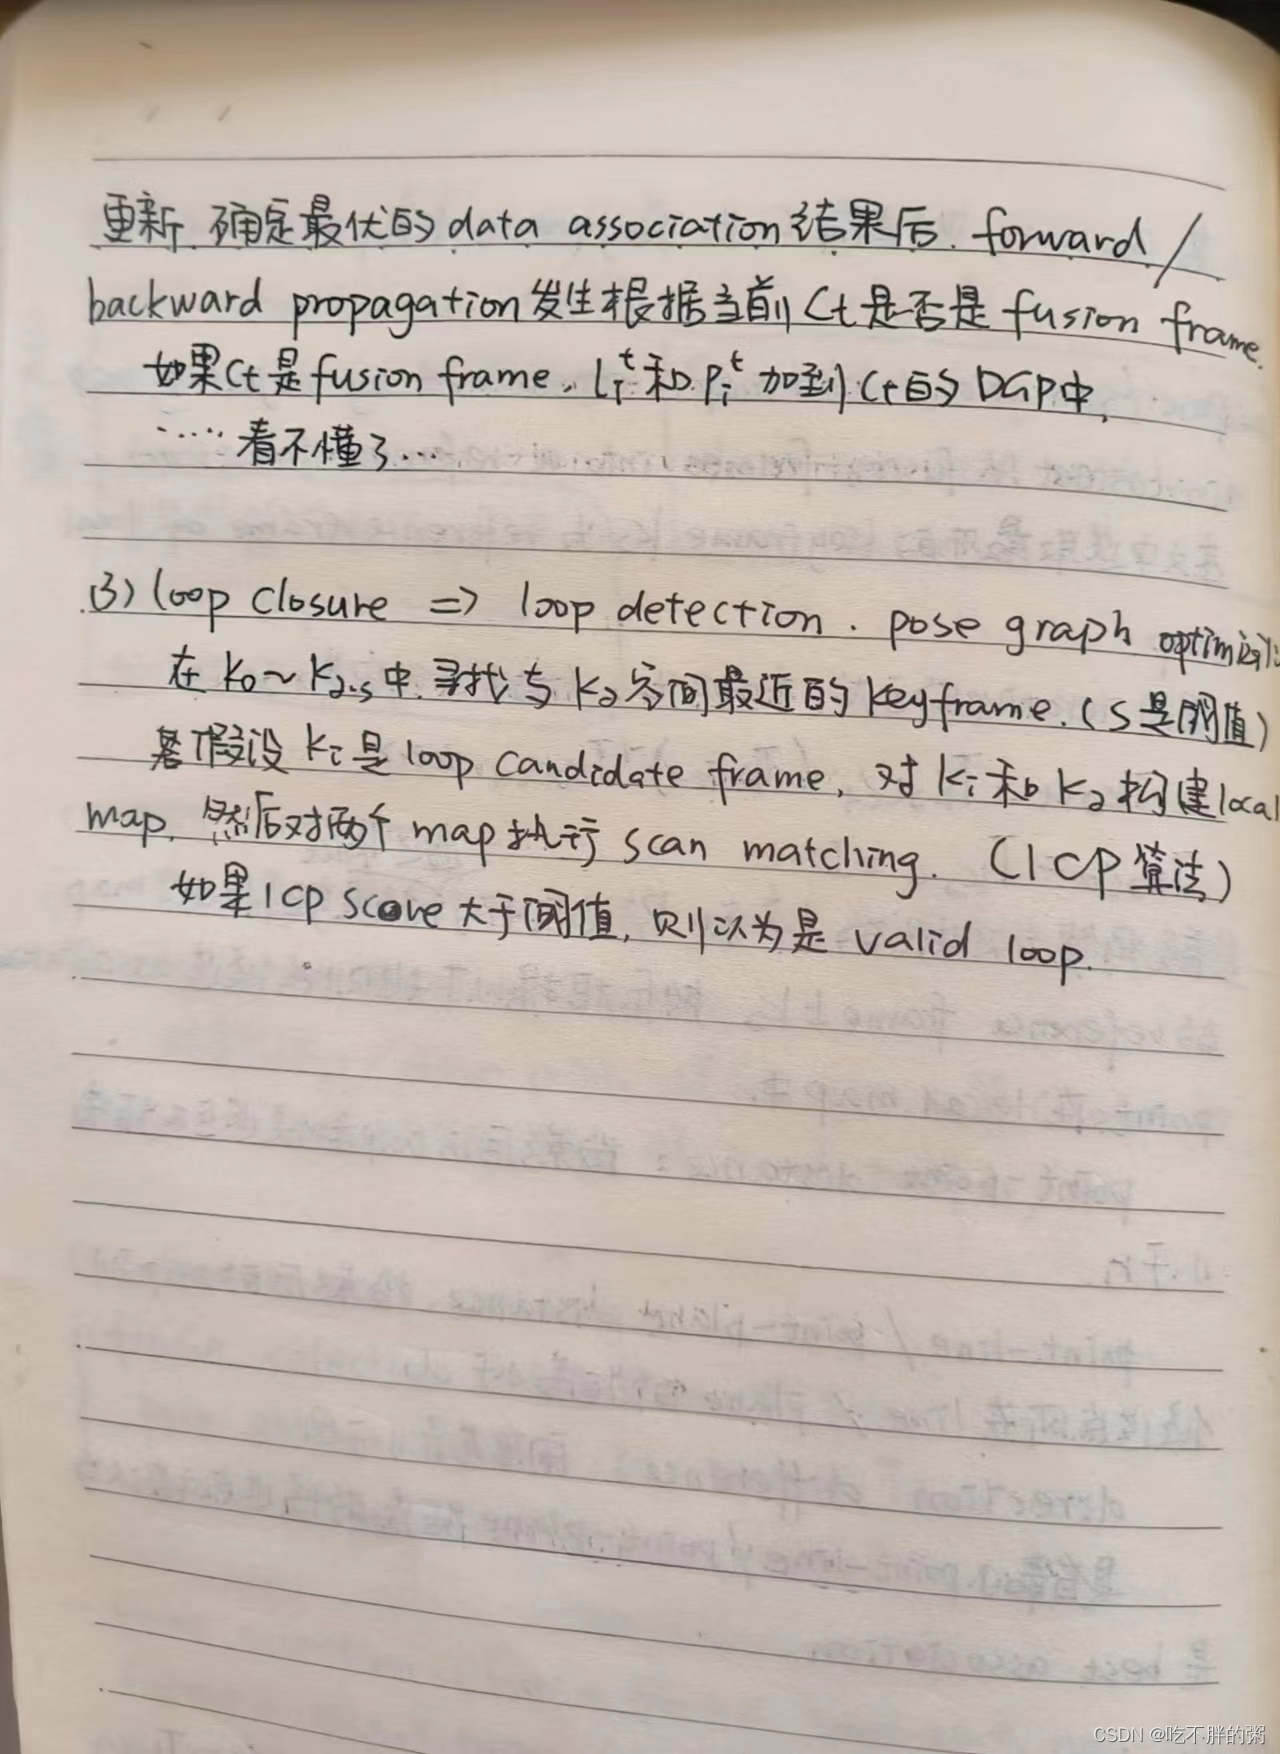 重新确定最优的data association结果后. forward/
backward propagation发生根据当前Ct是否是fusion frame.
如果Ct是fusion frame, lᵢᵗ和Pᵢᵗ加到Ct的DGP中,
……看不懂了…
(3) loop closure => loop detection. pose graph
在K0~K2-s中寻找与K2空间最近的keyframe.(S是阈值)
假设Ki是loop candidate frame, 对Ki和K2构建local
map, 然后对两个map执行scan matching. (ICP算法)
如果ICP score大于阈值, 则认为是valid loop.
CSDN @吃不胖的粥